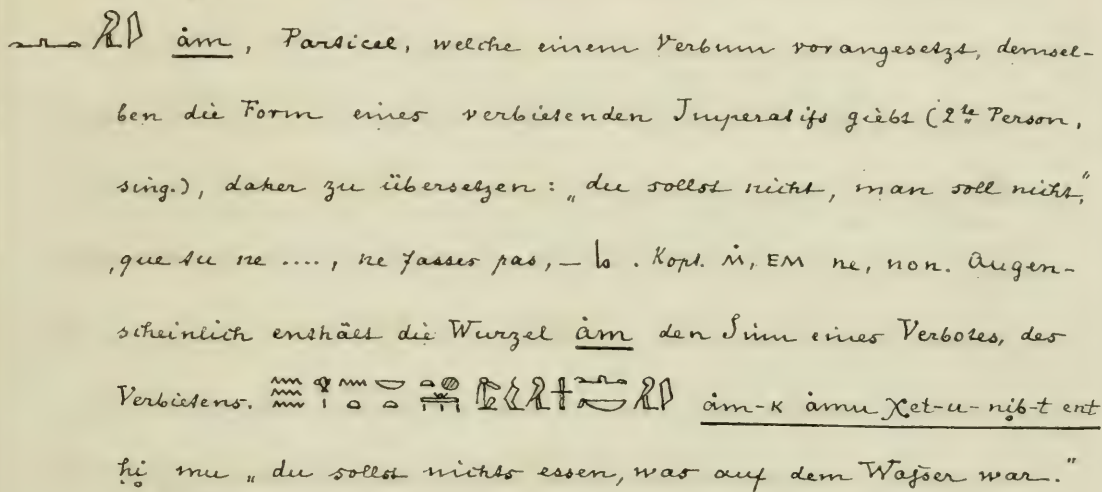 ȧm, Particel, welche einem Verbum vorangesetzt, demsel-
ben die Form eines verbietenden Imperatifs giebt (2te Person,
sing.), daher zu übersetzen: „du sollst nicht, man soll nicht,"
„que tu ne ...., ne fasses pas, — . Kopt. Ⲙ̇, ⲈⲘ ne, non. Augen-
scheinlich enthält die Wurzel ȧm den Sinn eines Verbotes, des
Verbietens. ȧm-k ȧmu χet-u-nib-t ent
ḥi mu „du sollst nichts essen, was auf dem Waſser war."